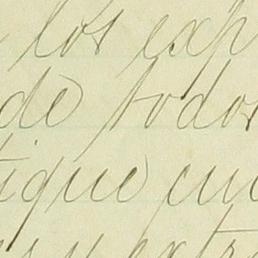 los exp
de todos
tique cu
y extr